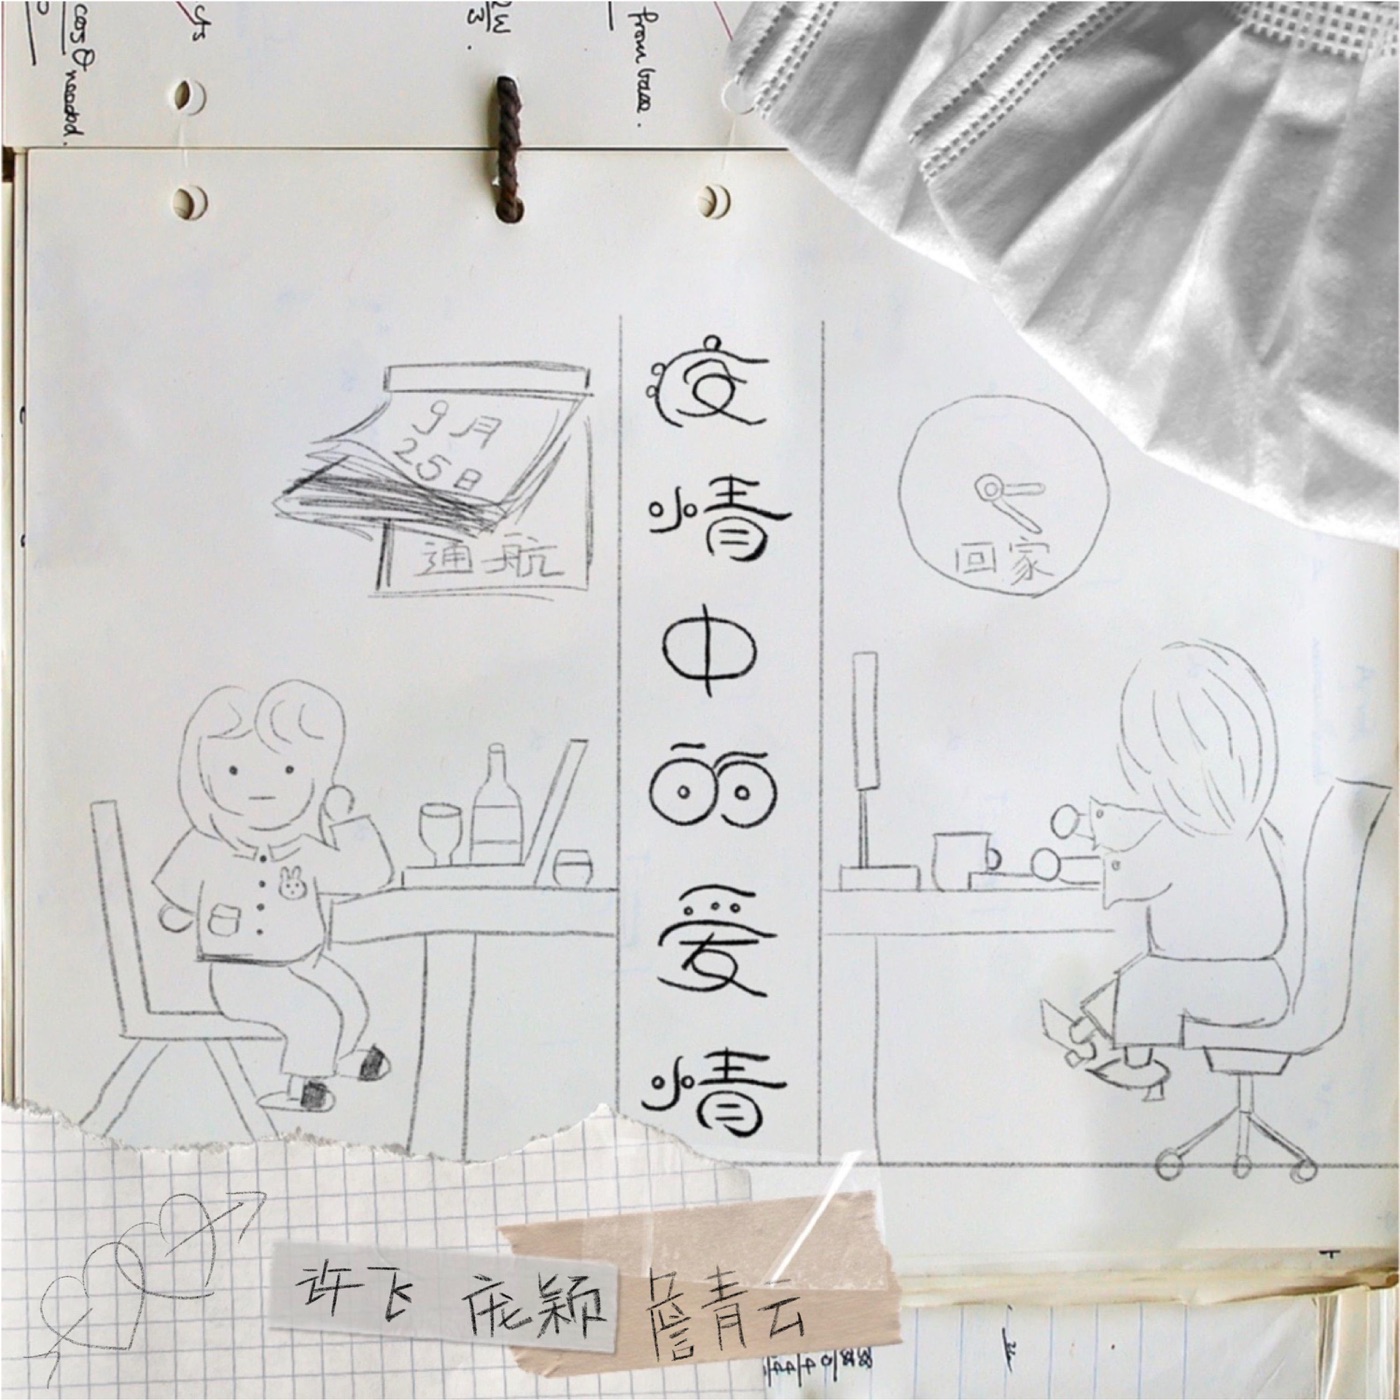 cosθ needed.
from base.
疫情中的爱情
9月
25日
通航
回家
许飞 庞颖 詹青云